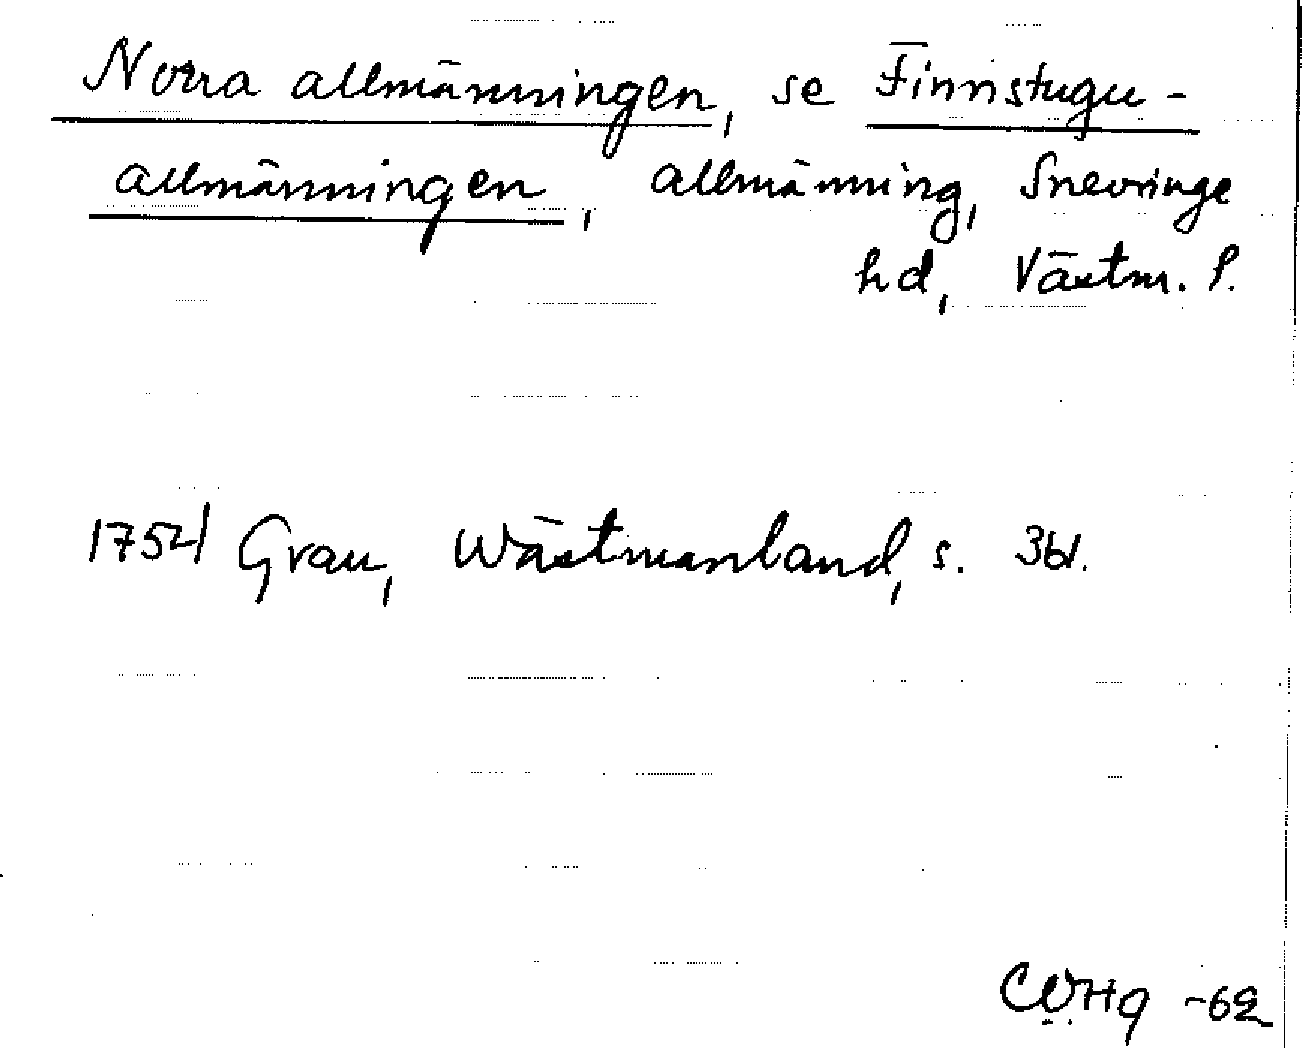 Norra allmänningen, se Finnstugu-
allmänningen, allmänning, Snevringe
hd, Västm. l.
1754 Grau, Wästmanland, s. 361.
-62